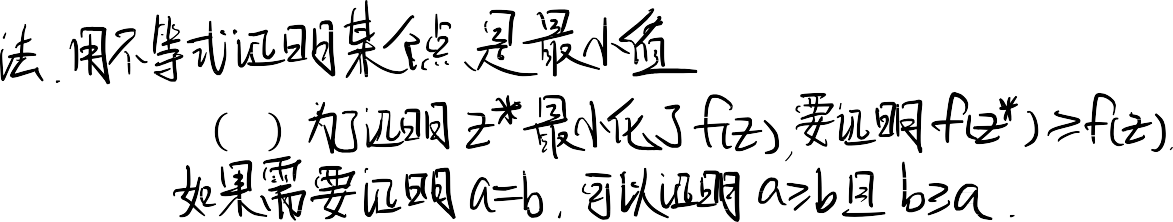 法. 用不等式证明某个点是最小值
( ) 为了证明 z* 最小化了 f(z), 要证明 f(z*) ≥ f(z).
如果需要证明 a=b, 可以证明 a≥b 且 b≥a.